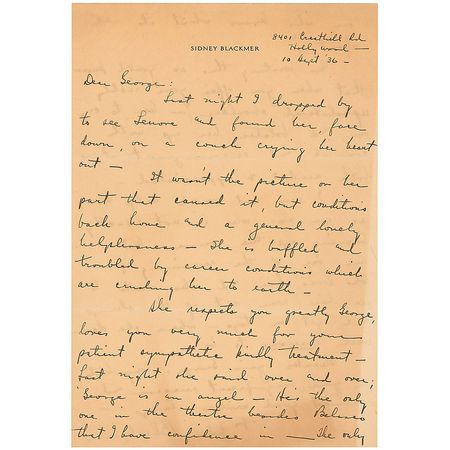 SIDNEY BLACKMER
8401 Cresthill Rd
Hollywood —
10 Sept '36 —
Dear George:
Last night I dropped by
to see Lenore and found her, face
down, on a couch crying her heart
out —
It wasn't the picture or her
part that caused it, but conditions
back home and a general lonely
helplessness — She is baffled and
troubled by career conditions which
are crushing her to earth —
She respects you greatly George,
loves you very much for your
patient sympathetic kindly treatment —
Last night she said over and over;
'George is an angel — He's the only
one in the theatre besides Belasco
that I have confidence in — The only